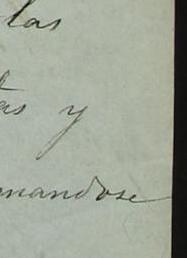 las
as y
mandose